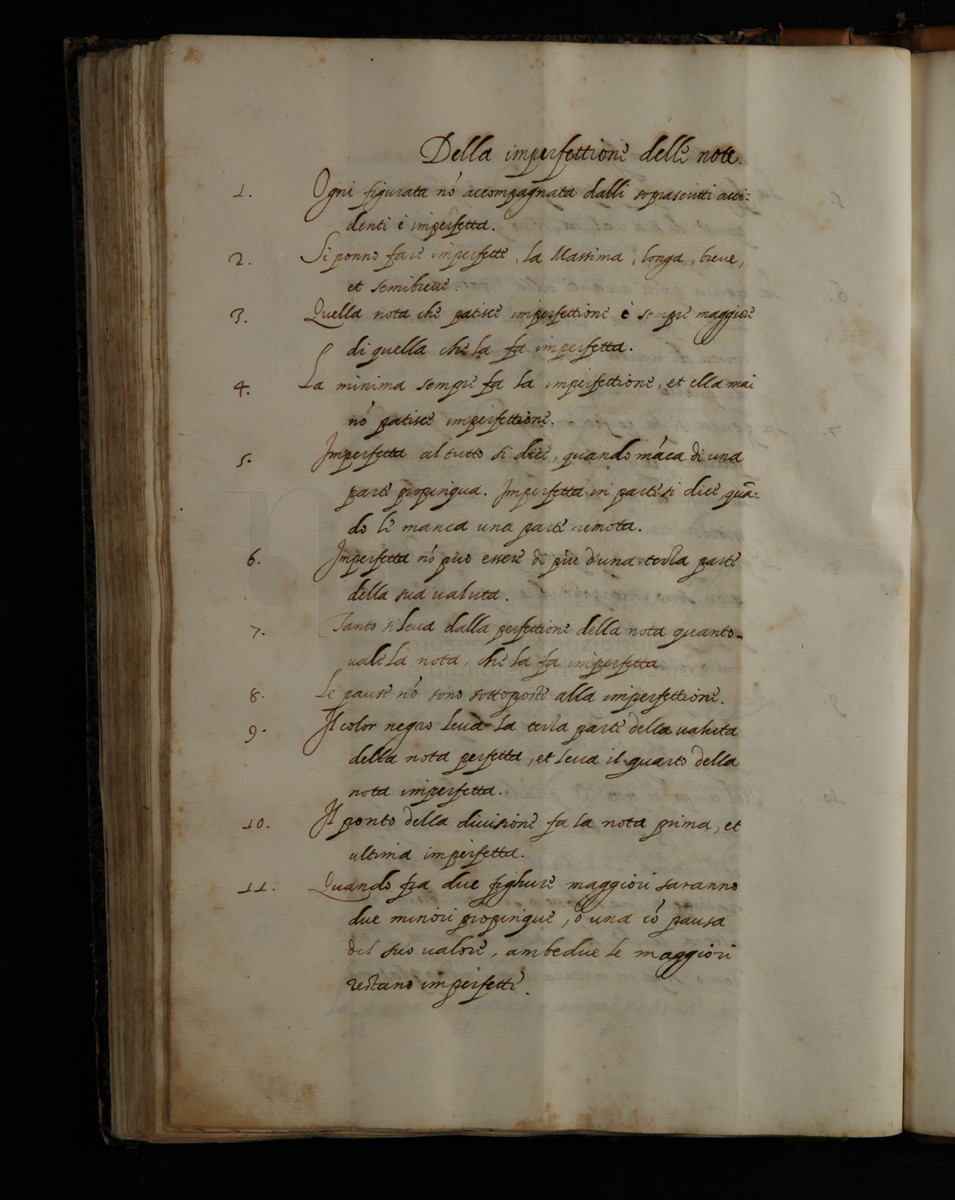 Della imperfettione delle note.
1. Ogni figurata nō accompagnata dalli soprascritti acci-
denti è imperfetta.
2. Si ponno fare imperfette, la Massima, longa, breue,
et semibreue.
3. Quella nota che patisce imperfettione è sempre maggiore
di quella che la fa imperfetta.
4. La minima sempre fa la imperfettione, et ella mai
nō patisce imperfettione.
5. Imperfetta al tutto si dice, quando māca di una
parte propinqua. Imperfetta in parte si dice, quā-
do le manca una parte remota.
6. Imperfetta nō può essere di più d'una terza parte
della sua ualuta.
7. Tanto si leua dalla perfettione della nota quanto
uale la nota, che la fa imperfetta.
8. Le pause nō sono sottoposte alla imperfettione.
9. Il color negro leua la terza parte della ualuta
della nota perfetta, et leua il quarto della
nota imperfetta.
10. Il ponto della diuisione fa la nota prima, et
ultima imperfetta.
11. Quando fra due fighure maggiori saranno
due minori propinque, ò una cō pausa
del suo ualore, ambedue le maggiori
restano imperfette.